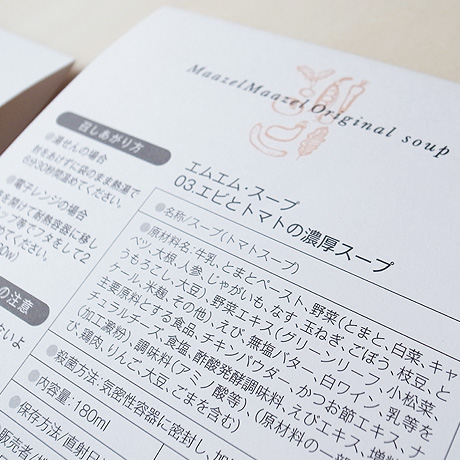 MaazelMaazel Original soup
召しあがり方
●湯せんの場合
封をあけずに袋のまま熱湯で
6分30秒間温めてください。
●電子レンジの場合
を開けて耐熱容器に移し
ップ等でフタをして2
めてください。
0w)
の注意
ないよ
エムエム・スープ
03.エビとトマトの濃厚スープ
●名称/スープ(トマトスープ)
●原材料名:牛乳、とまとペースト、野菜(とまと、白菜、キャ
ベツ、大根、人参、じゃがいも、なす、玉ねぎ、ごぼう、枝豆、と
うもろこし、大豆)、野菜エキス(グリーンリーフ、小松菜、
ケール、米麹、その他)、えび、無塩バター、白ワイン、乳等を
主要原料とする食品、チキンパウダー、かつお節エキス、ナ
チュラルチーズ、食塩、酢酸発酵調味料、えびエキス、増粘
(加工澱粉)、調味料(アミノ酸等)、(原材料の一部
び、鶏肉、りんご、大豆、ごまを含む)
●殺菌方法:気密性容器に密封し、加
●内容量:180ml
保存方法/直射日
販売者/